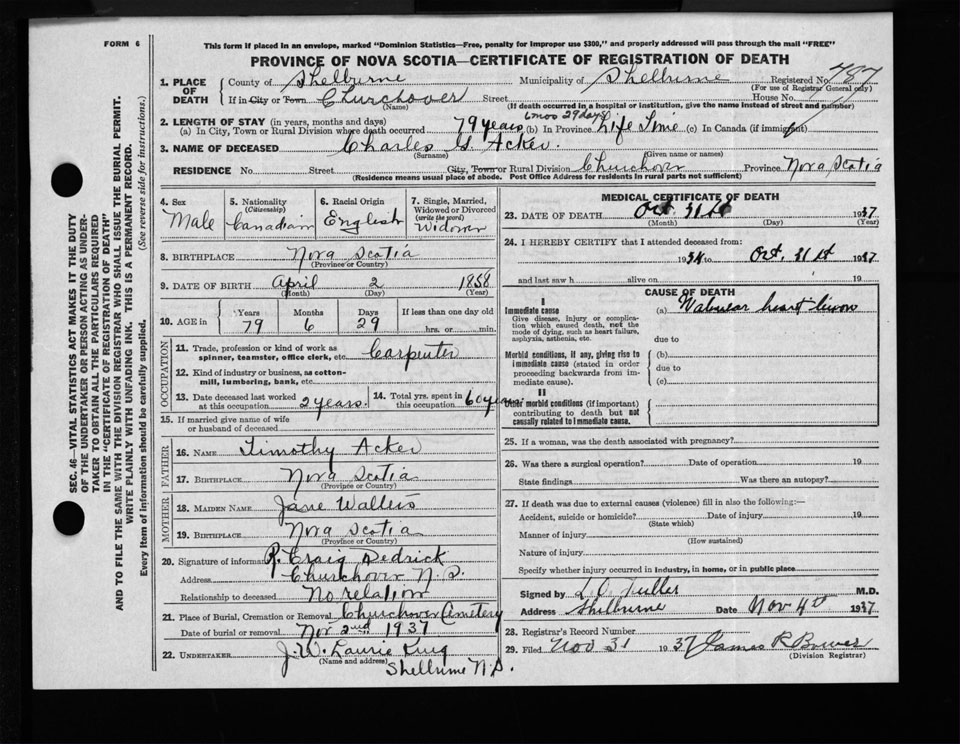 FORM 6
This form if placed in an envelope, marked "Dominion Statistics—Free, penalty for improper use $300," and properly addressed will pass through the mail "FREE"
PROVINCE OF NOVA SCOTIA—CERTIFICATE OF REGISTRATION OF DEATH
1. PLACE OF DEATH
County of Shelburne Municipality of Shelburne Registered No. 787
(For use of Registrar General only)
If in City or Town Churchover Street House No.
(Name) (If death occurred in a hospital or institution, give the name instead of street and number)
2. LENGTH OF STAY (in years, months and days) 6 mos 29 days
(a) In City, Town or Rural Division where death occurred 79 years (b) In Province Life Time (c) In Canada (if immigrant)
3. NAME OF DECEASED Charles G. Acker.
(Surname) (Given name or names)
RESIDENCE No. Street City, Town or Rural Division Churchover Province Nova Scotia
(Residence means usual place of abode. Post Office Address for residents in rural parts not sufficient)
4. Sex Male
5. Nationality (Citizenship) Canadian
6. Racial Origin English
7. Single, Married, Widowed or Divorced (write the word) Widower
8. BIRTHPLACE Nova Scotia
(Province or Country)
9. DATE OF BIRTH April 2 1858
(Month) (Day) (Year)
10. AGE in Years 79 Months 6 Days 29 If less than one day old hrs. or min.
OCCUPATION
11. Trade, profession or kind of work as spinner, teamster, office clerk, etc. Carpenter
12. Kind of industry or business, as cotton-mill, lumbering, bank, etc.
13. Date deceased last worked at this occupation 2 years.
14. Total yrs. spent in this occupation 60 years
15. If married give name of wife or husband of deceased
FATHER
16. NAME Timothy Acker
17. BIRTHPLACE Nova Scotia
(Province or Country)
MOTHER
18. MAIDEN NAME Jane Walters
19. BIRTHPLACE Nova Scotia
(Province or Country)
20. Signature of informant R. Craig Dedrick
Address Churchover N.S.
Relationship to deceased No relation
21. Place of Burial, Cremation or Removal Churchover Cemetery
Date of burial or removal Nov 2nd 1937
22. UNDERTAKER J.W. Laurie King
(Name and address) Shelburne N.S.
MEDICAL CERTIFICATE OF DEATH
23. DATE OF DEATH Oct. 31st 1937
(Month) (Day) (Year)
24. I HEREBY CERTIFY that I attended deceased from:
19 to Oct. 31st 1937
and last saw h alive on 19
CAUSE OF DEATH
I
Immediate cause (a) Valvular heart lesion
Give disease, injury or complication which caused death, not the mode of dying, such as heart failure, asphyxia, asthenia, etc.
due to
Morbid conditions, if any, giving rise to immediate cause (stated in order proceeding backwards from immediate cause).
(b)
due to
(c)
II
Other morbid conditions (if important) contributing to death but not causally related to immediate cause.
25. If a woman, was the death associated with pregnancy?
26. Was there a surgical operation? Date of operation 19
State findings Was there an autopsy?
27. If death was due to external causes (violence) fill in also the following:—
Accident, suicide or homicide? Date of injury 19
(State which)
Manner of injury
(How sustained)
Nature of injury
Specify whether injury occurred in industry, in home, or in public place
Signed by L.O. Fuller M.D.
Address Shelburne Date Nov 4th 1937
28. Registrar's Record Number
29. Filed Nov 31 1937 James R Bower
(Division Registrar)
SEC. 46—VITAL STATISTICS ACT MAKES IT THE DUTY OF THE UNDERTAKER OR PERSON ACTING AS UNDERTAKER TO OBTAIN ALL THE PARTICULARS REQUIRED IN THE "CERTIFICATE OF REGISTRATION OF DEATH" AND TO FILE THE SAME WITH THE DIVISION REGISTRAR WHO SHALL ISSUE THE BURIAL PERMIT.
WRITE PLAINLY WITH UNFADING INK. THIS IS A PERMANENT RECORD.
Every item of information should be carefully supplied. (See reverse side for instructions.)